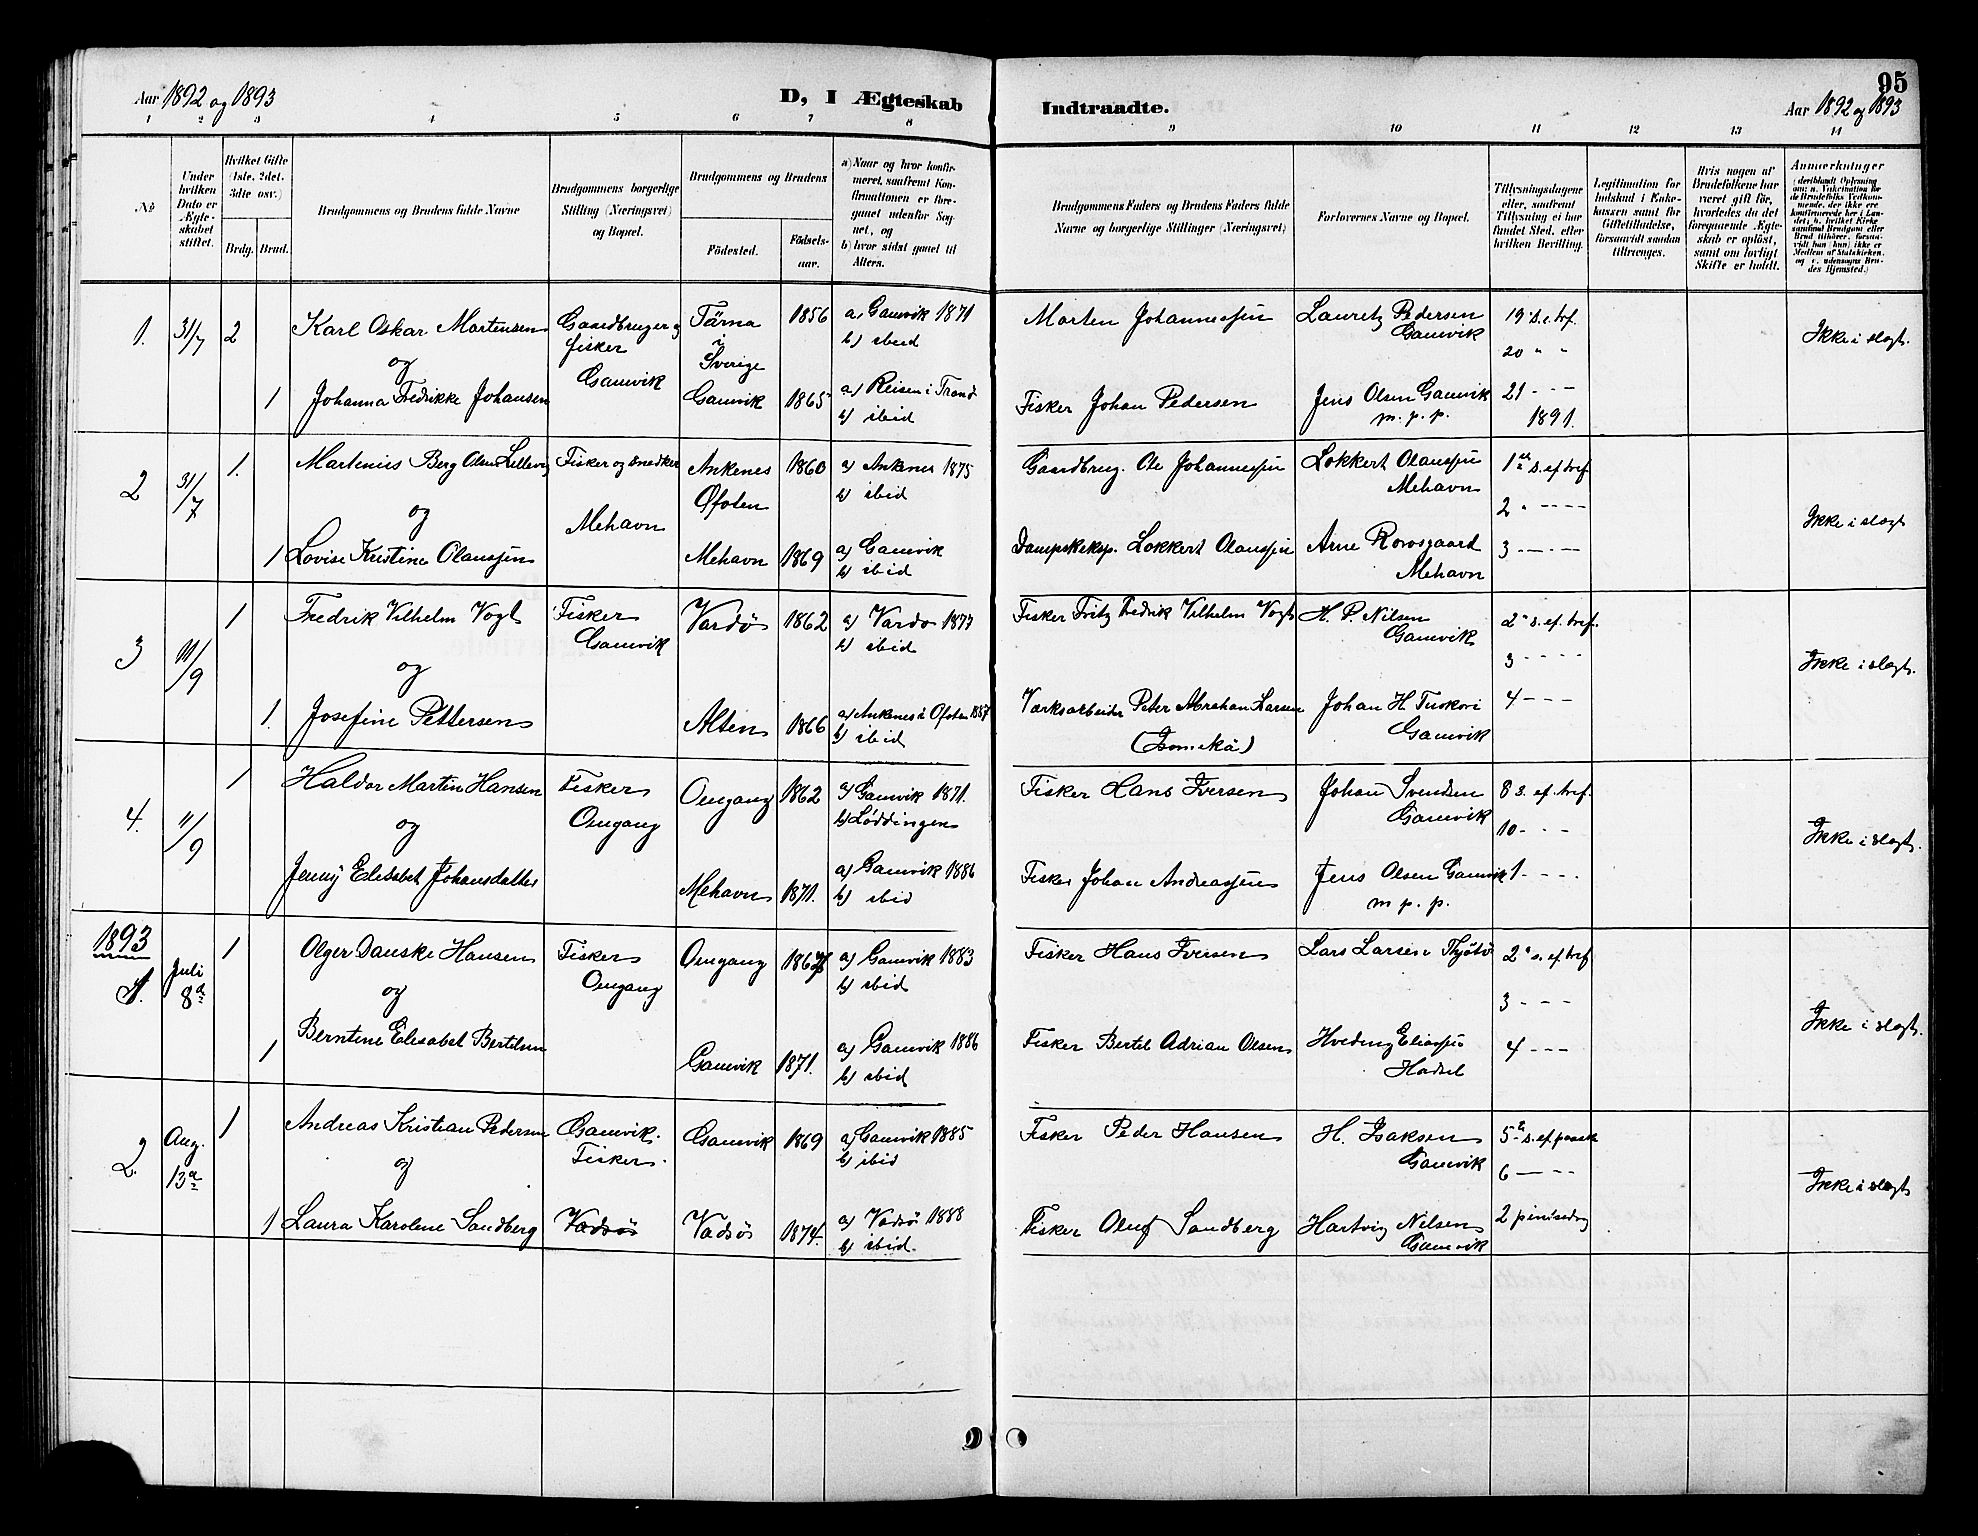 95
Aar 1892 og 1893
D, I Ægteskab
Indtraadte.
Aar 1892 og 1893
1 2 3 4 5 6 7 8 9 10 11 12 13 14
No
Under hvilken Dato er Ægteskabet stiftet.
Hvilket Gifte (1ste, 2det, 3die osv.)
Brdg. Brud.
Brudgommens og Brudens fulde Navne
Brudgommens borgerlige Stilling (Næringsvei) og Bopæl.
Brudgommens og Brudens
Födested.
Födsels-aar.
a) Naar og hvor konfirmeret, saafremt Konfirmationen er foregaaet udenfor Sognet, og
b) hvor sidst gaaet til Alters.
Brudgommens Faders og Brudens Faders fulde Navne og borgerlige Stillinger (Næringsvei)
Forlovernes Navne og Bopæl.
Tillysningsdagene eller, saafremt Tillysning ei har fundet Sted, efter hvilken Bevilling.
Legitimation for Indskud i Enkekassen samt for Giftetilladelse, forsaavidt saadan tiltrænges.
Hvis nogen af Brudefolkene har været gift för, hvorledes da det foregaaende Ægteskab er oplöst, samt om lovligt Skifte er holdt.
Anmærkninger
1. 31/7 2 Karl Oskar Martensen Gaardbruger og fisker Gamvik Tärna i Sverige 1856 a, Gamvik 1871 b) ibid Morten Johannessen Lauritz Pedersen Gamvik 19 s. e. tref. 20 " " Ikke i slægt.
og
1 Johanna Fredrikke Johansen Gamvik 1865 a) Reisen i Trand b) ibid Fisker Johan Pedersen Jens Olsen Gamvik m. p. p. 21 - - - 1891.
2 31/7 1. Martenius Berg Olsen Fisker og snedker Mehavn Ankenes Ofoten 1860 a) Ankenes 1875 b) ibid Gaardbrug. Ole Johannessen Lokkert Olaussen Mehavn 1ste s. ef. tref 2 " - - - Ikke i slægt
og
1 Lovise Kristine Olaussen Mehavn 1869 a) Gamvik b) ibid Dampskeksp. Lokkert Olaussen Arne Mehavn 3 - - -
3 11/9 1 Fredrik Vilhelm Vogt Fisker Gamvik Vardö 1862 a) Vardo 1877 b) ibid Fisker Fritz Fredrik Vilhelm Vogt H. P. Nilsen Gamvik 2" s. ef. tref. 3 - - - - Ikke i slægt.
og
1. Josefine Pettersen Alten 1866 a) Ankenes i Ofoten b) ibid Værksarbeider Peter Abrahan Larsen Johan H. Gamvik 4 - - -
4. 11/9 1 Haldor Martin Hansen Fisker Omgang Omgang 1862 a) Gamvik 1871. b) Løddingen Fisker Hans Iversen Johan Svendsen Gamvik 8 s. ef. tref. 10 - - - Ikke i slægt.
og
Jenny Elisabet Johansdatter Mehavn 1871. a) Gamvik 1886 b) ibid Fisker Johan Andreassen Jens Olsen Gamvik m p. p. 1 - - - -
1893
1. Juli 8de 1 Olger Danske Hansen Fisker Omgang Omgang a) Gamvik 1883 b) ibid Fisker Hans Iversen Lars Larsen 2" s. ef. tref 3 - - - Ikke i slægt.
og
1 Berntine Elisabet Bertelsen Gamvik 1871. a) Gamvik 1886 b) ibid Fisker Bertel Adrian Olsen Hveding Eliassen Hadsel 4 - - -
2. Aug. 13de 1 Andreas Kristian Pedersen Gamvik. Fisker. Gamvik 1869 a) Gamvik 1885 b) ibid Fisker Peder Hansen H. Isaksen Gamvik 5te s. ef. paask 6 - - - Ikke i slægt
og
1 Laura Karolene Sandberg Vadsö Vadsö 1874. a) Vadsö 1888 b) ibid. Fisker Oluf Sandberg Hartvig Nilsen Gamvik 2 pinsedag